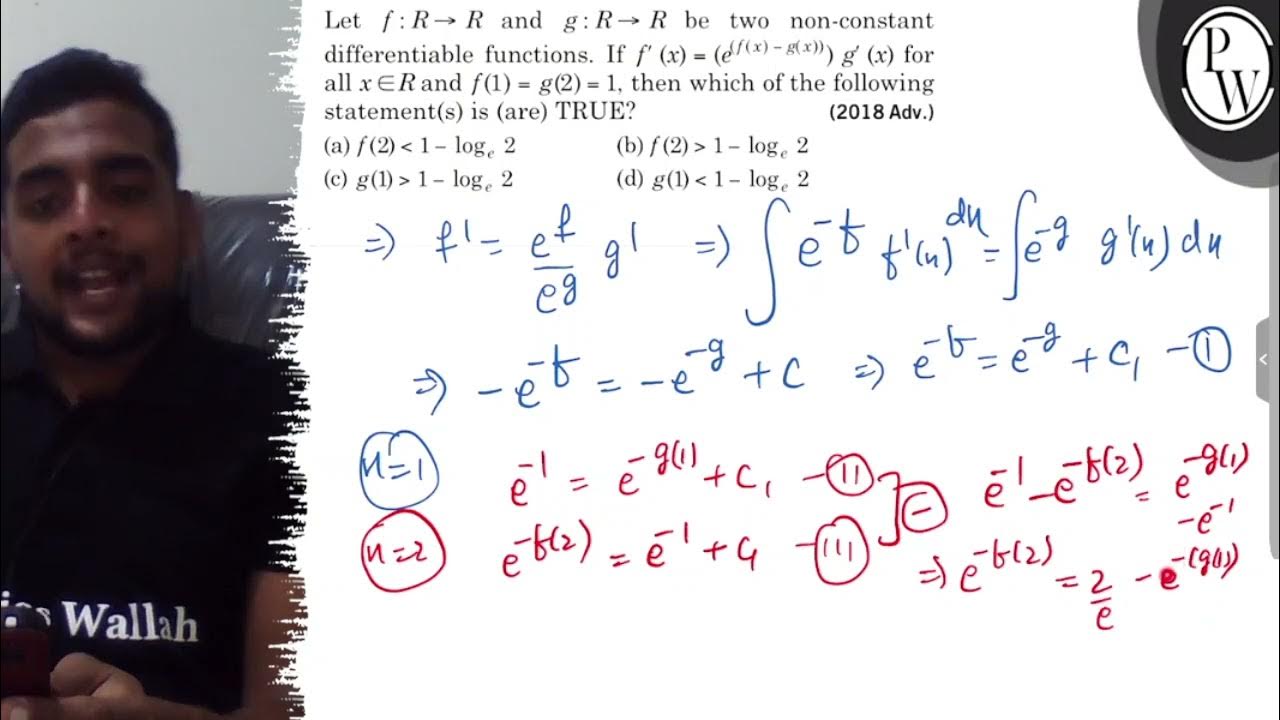 Let f : R → R and g : R → R be two non-constant
differentiable functions. If f′ (x) = (e^(f(x) − g(x))) g′ (x) for
all x ∈ R and f(1) = g(2) = 1, then which of the following
statement(s) is (are) TRUE? (2018 Adv.)
(a) f(2) < 1 − logₑ 2 (b) f(2) > 1 − logₑ 2
(c) g(1) > 1 − logₑ 2 (d) g(1) < 1 − logₑ 2
PW
⇒ f' = e^f/e^g g' ⇒ ∫ e^-f f'(x) dx = ∫ e^-g g'(x) dx
⇒ -e^-f = -e^-g + C ⇒ e^-f = e^-g + C₁ -①
x=1 e^-1 = e^-g(1) + C₁ -(11)
x=2 e^-f(2) = e^-1 + C₁ -(111)
(-) e^-1 - e^-f(2) = e^-g(1) - e^-1
⇒ e^-f(2) = 2/e - e^-(g(1))
Wallah